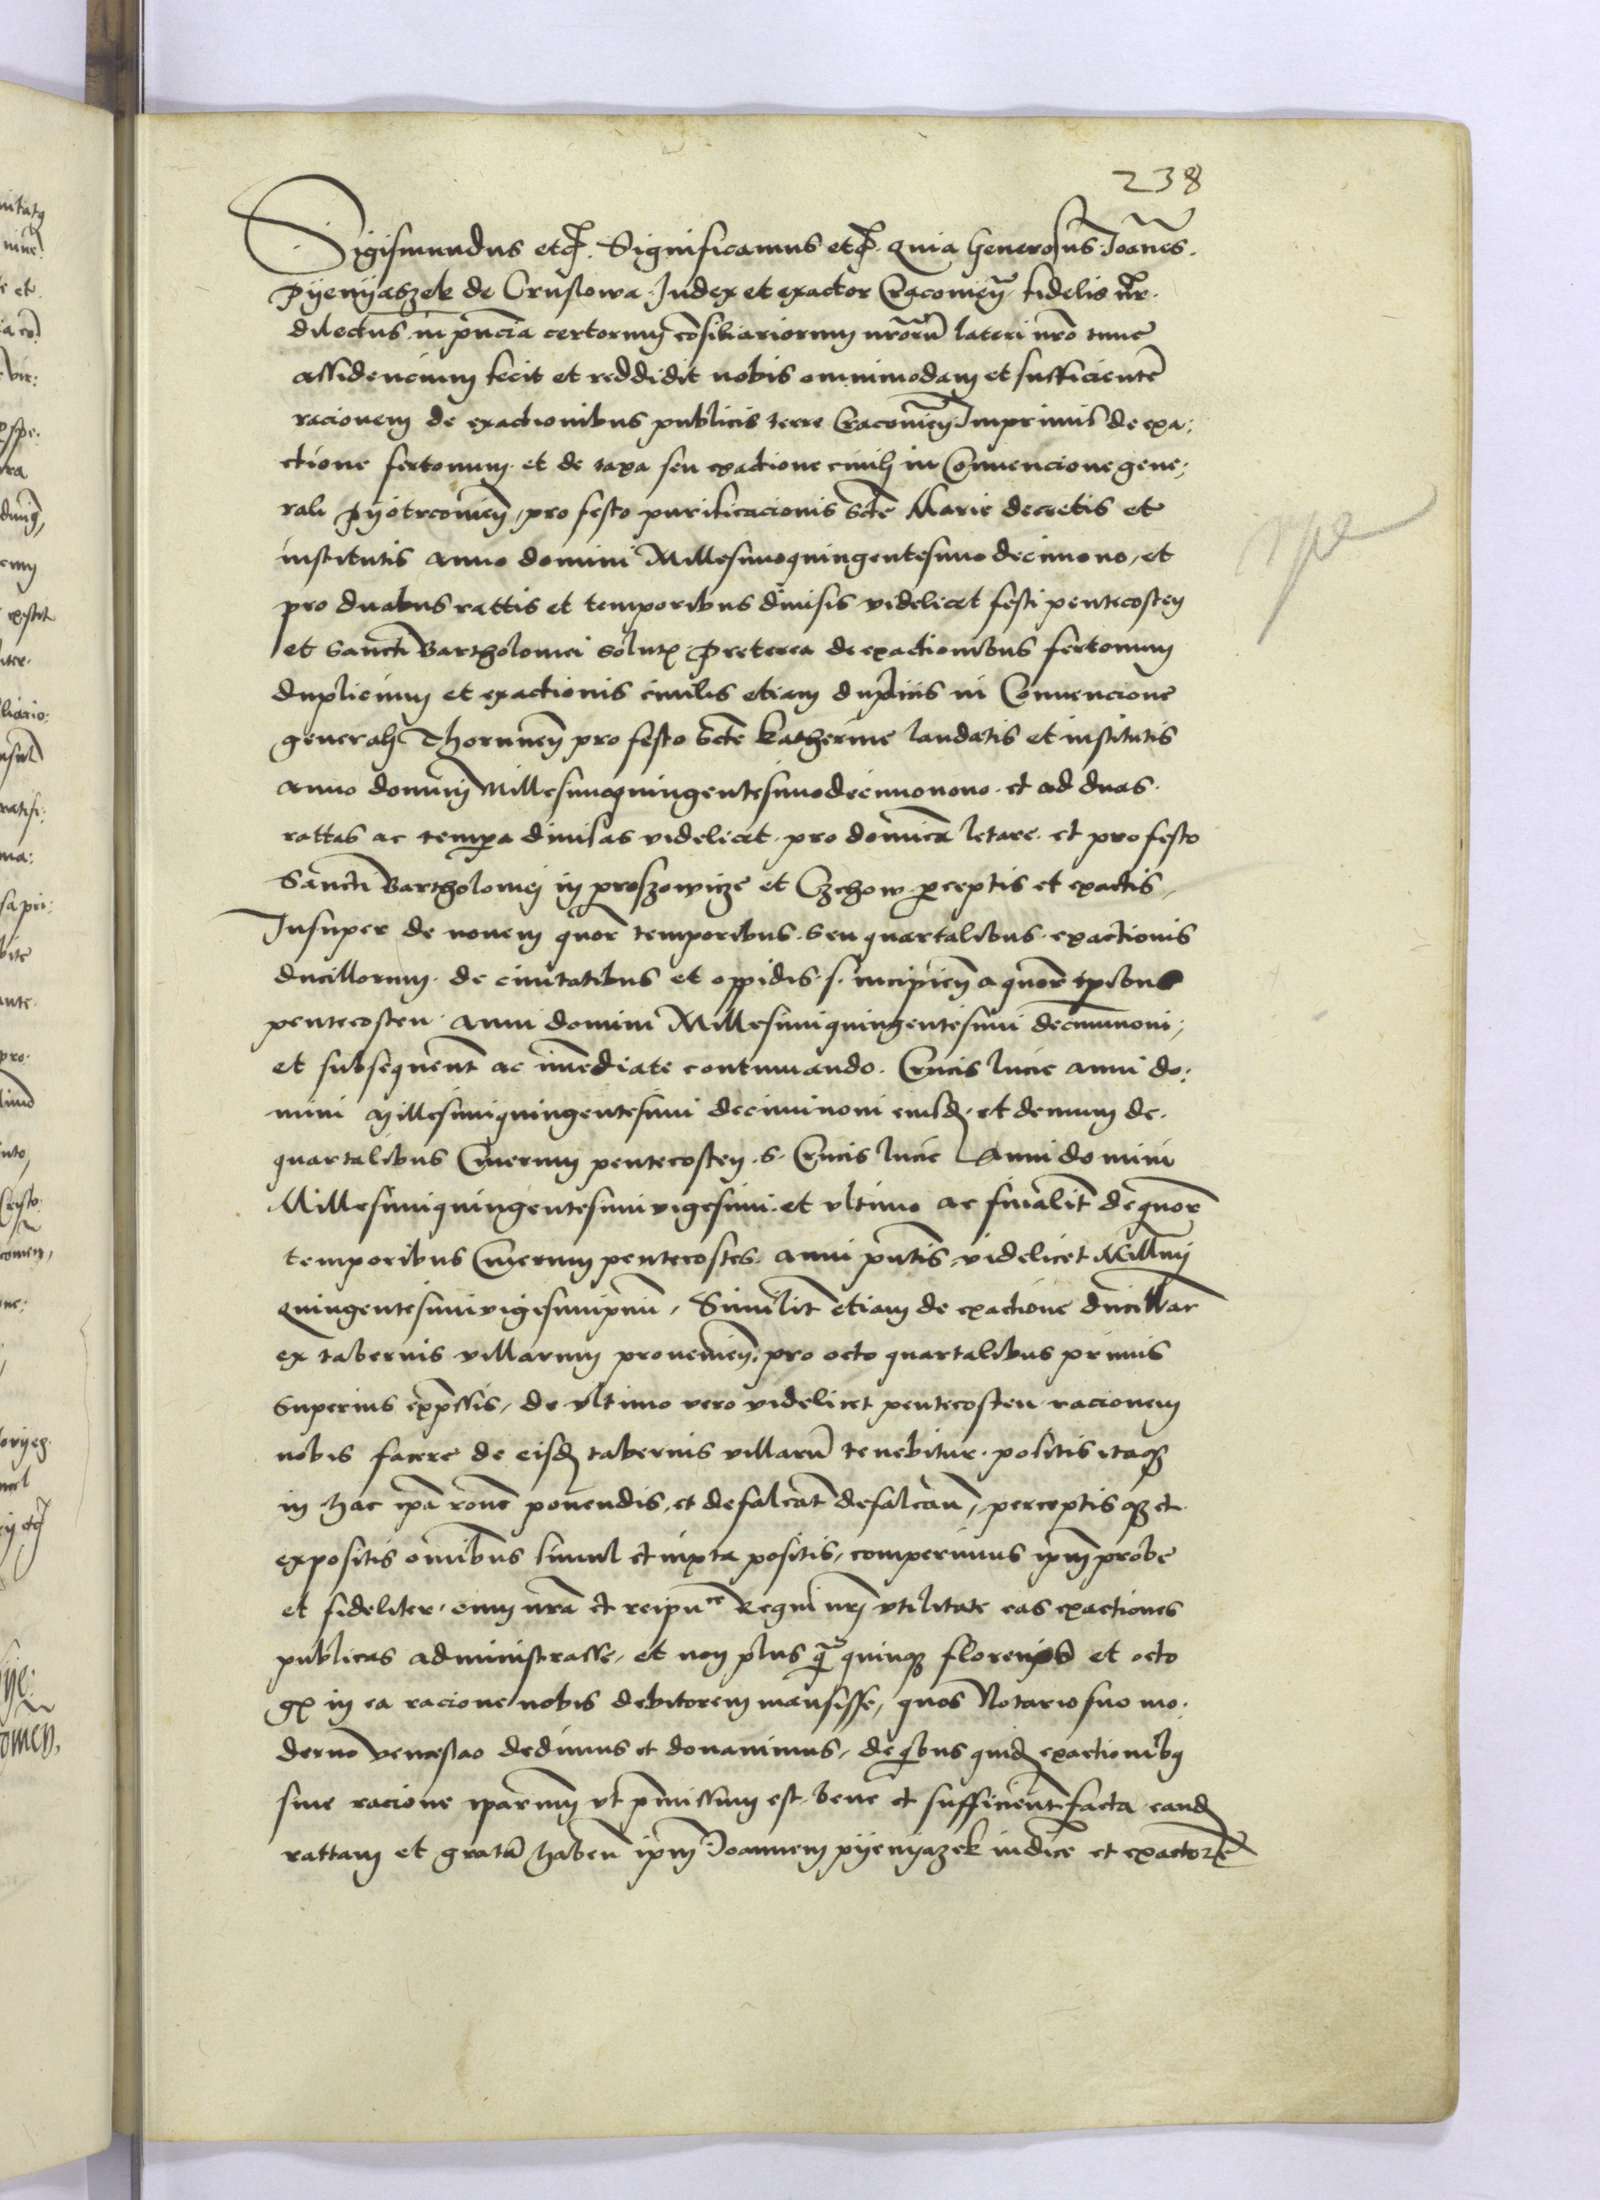 238
Sigismundus etc. Significamus etc. quia Generosus Ioannes
Pyenyaszek de Cruslowa Iudex et exactor Cracovien fidelis nr
dilectus in pncia certorum cosiliariorum nrorum lateri nro tunc
assidencium fecit et reddidit nobis omnimodam et sufficiente
racionem de exactionibus publicis terre Cracovien Inprimis de exa:
ctione fertonum et de taxa seu exactione civili in Convencione gene:
rali Pyotrcovien, pro festo purificacionis Scte Marie decretis et
institutis anno domini Millesimoquingentesimo decimono, et
pro duabus rattis et temporibus divisis videlicet festi pentecosten
et Sancti Bartholomei solut Preterea de exactionibus fertonum
duplicium et exactionis civilis etiam duplicis in Convencione
generali Thorunen pro festo Scte Katherine laudatis et institutis
anno domini Millesimoquingentesimodecimonono et ad duas
rattas ac tempa divisas videlicet pro dominica letare et pro festo
Sancti Bartholomei in proszowicze et Czchow perceptis et exactis,
Insuper de novem quor temporibus seu quartalibus exactionis
ducillorum de civitatibus et oppidis s. incipien a quor tpibus
pentecosten anni domini Millesimiquingentesimi deciminoni,
et subsequent ac imediate continuando Crucis lucie anni do:
mini Millesimiquingentesimi deciminoni eiusd et demum de
quartalibus Cinerum pentecosten s. Crucis lucie Anni domini
Millesimiquingentesimi vigesimi et ultimo ac finalit de quor
temporibus Cinerum pentecostes anni pntis videlicet Millmi
quingentesimivigesimiprimi, Similit etiam de exactione ducillar
ex tabernis villarum provenien, pro octo quartalibus primis
superius expssis, de ultimo vero videlicet pentecosten racionem
nobis facere de eisd tabernis villaru tenebitur positis itaq
in hac ipa rone ponendis, et defalcat defalcan, perceptis q et
expositis omibus simul et iuxta positis, comperimus ipm probe
et fideliter cum nra et reipuce Regni nri utilitate eas exactiones
publicas administrasse, et non plus q quinq florenos et octo
gr in ea racione nobis debitorem mansisse, quos Notario suo mo:
derno venceslao dedimus et donavimus, de qbus quid exactionibq
sive racione iparum ut pmissum est bene et sufficient facta eand
rattam et grata haben ipm Ioannem pyenyazek iudice et exactore